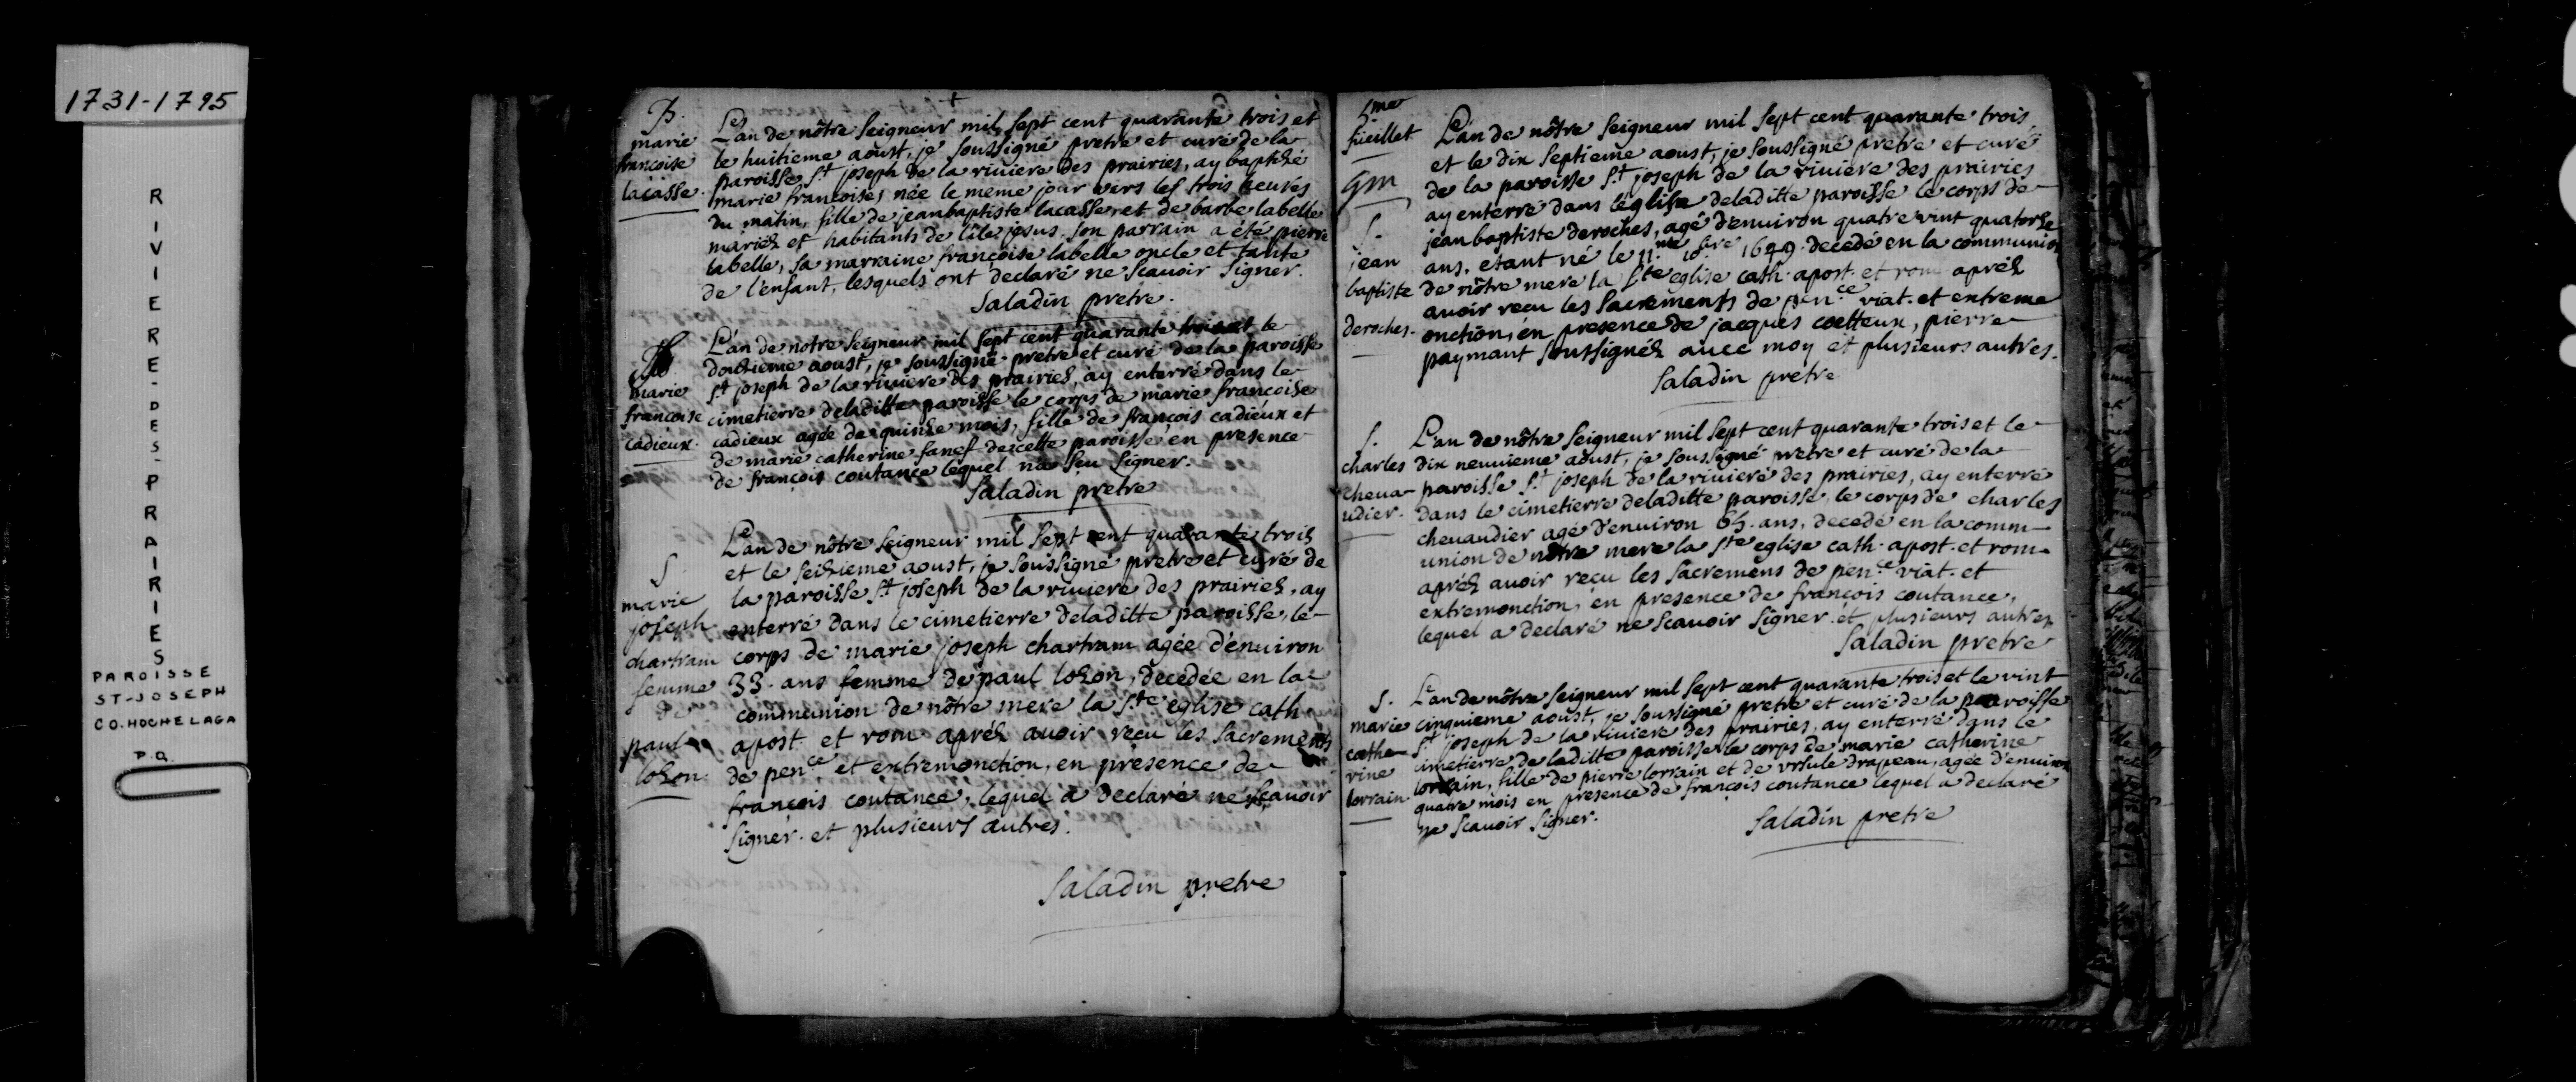 1731-1795
RIVIERE-DES-PRAIRIES
PAROISSE
ST-JOSEPH
CO. HOCHELAGA
P.Q.
B.
marie
françoise
lacasse.
L'an de nôtre seigneur mil sept cent quarante trois et
le huitieme aoust, je soussigné pretre et curé de la
paroisse St joseph de la riviere des prairies, ay baptizé
marie françoise, née le meme jour vers les trois heures
du matin, fille de jean baptiste lacasse, et de barbe labelle
mariéz et habitants de l'ile jesus, son parrain a été pierre
labelle, sa marraine françoise labelle oncle et tante
de l'enfant, lesquels ont declaré ne scavoir signer.
Saladin pretre.
marie
françoise
cadieux.
L'an de notre seigneur mil sept cent quarante trois et le
douzieme aoust, je soussigné pretre et curé de la paroisse
St joseph de la riviere des prairiez, ay enterré dans le
cimetierre de laditte paroisse le corps de marie françoise
cadieux agée de quinze mois, fille de françois cadieux et
de marie catherine de cette paroisse, en presence
de françois coutance lequel n'a seu signer.
Saladin pretre
S
marie
joseph
chartram
femme
de
paul
lozon.
L'an de nôtre seigneur mil sept cent quarante trois
et le seizieme aoust, je soussigné pretre et curé de
la paroisse St joseph de la riviere des prairiez, ay
enterré dans le cimetierre de laditte paroisse, le
corps de marie joseph chartram agée d'environ
33. ans femme de paul lozon, decedée en la
communion de nôtre mere la Ste eglise cath.
apost. et rom. apréz avoir reçu les sacrements
de pence et extremonction, en presence de
françois coutance, lequel a declaré ne sçavoir
signer. et plusieurs autres.
Saladin pretre
5me
fueillet
S.
jean
baptiste
deroches.
L'an de nôtre seigneur mil sept cent quarante trois
et le dix septieme aoust, je soussigné pretre et curé
de la paroisse St joseph de la riviere des prairies
ay enterré dans l'églize de laditte paroisse le corps de
jean baptiste deroches, agé d'environ quatre vint quatorze
ans, etant né le 11.me 10.bre 1649. decedé en la communion
de nôtre mere la Ste eglise cath. apost. et rom. apréz
avoir reçu les sacrements de pence viat. et extreme
onction, en presence de jacques coetteux, pierre
paymant soussignéz avec moy et plusieurs autres.
Saladin pretre
S.
charles
cheva-
udier.
L'an de nôtre seigneur mil sept cent quarante trois et le
dix neuvieme aoust, je soussigné pretre et curé de la
paroisse St joseph de la riviere des prairies, ay enterré
dans le cimetierre de laditte paroisse le corps de charles
chevaudier agé d'environ 65. ans, decedé en la comm-
union de nôtre mere la Ste eglise cath. apost. et rom.
apréz avoir reçu les sacremens de pence viat. et
extremonction, en presence de françois coutance,
lequel a declaré ne scavoir signer. et plusieurs autres
Saladin pretre
S.
marie
cathe-
rine
lorrain.
L'an de nôtre seigneur mil sept cent quarante trois et le vint
cinquieme aoust, je soussigné pretre et curé de la paroisse
St joseph de la riviere des prairies, ay enterré dans le
cimetierre de laditte paroisse le corps de marie catherine
lorrain, fille de pierre lorrain et de ursule drapeau, agée d'environ
quatre mois en presence de françois coutance lequel a declaré
ne scavoir signer.
Saladin pretre